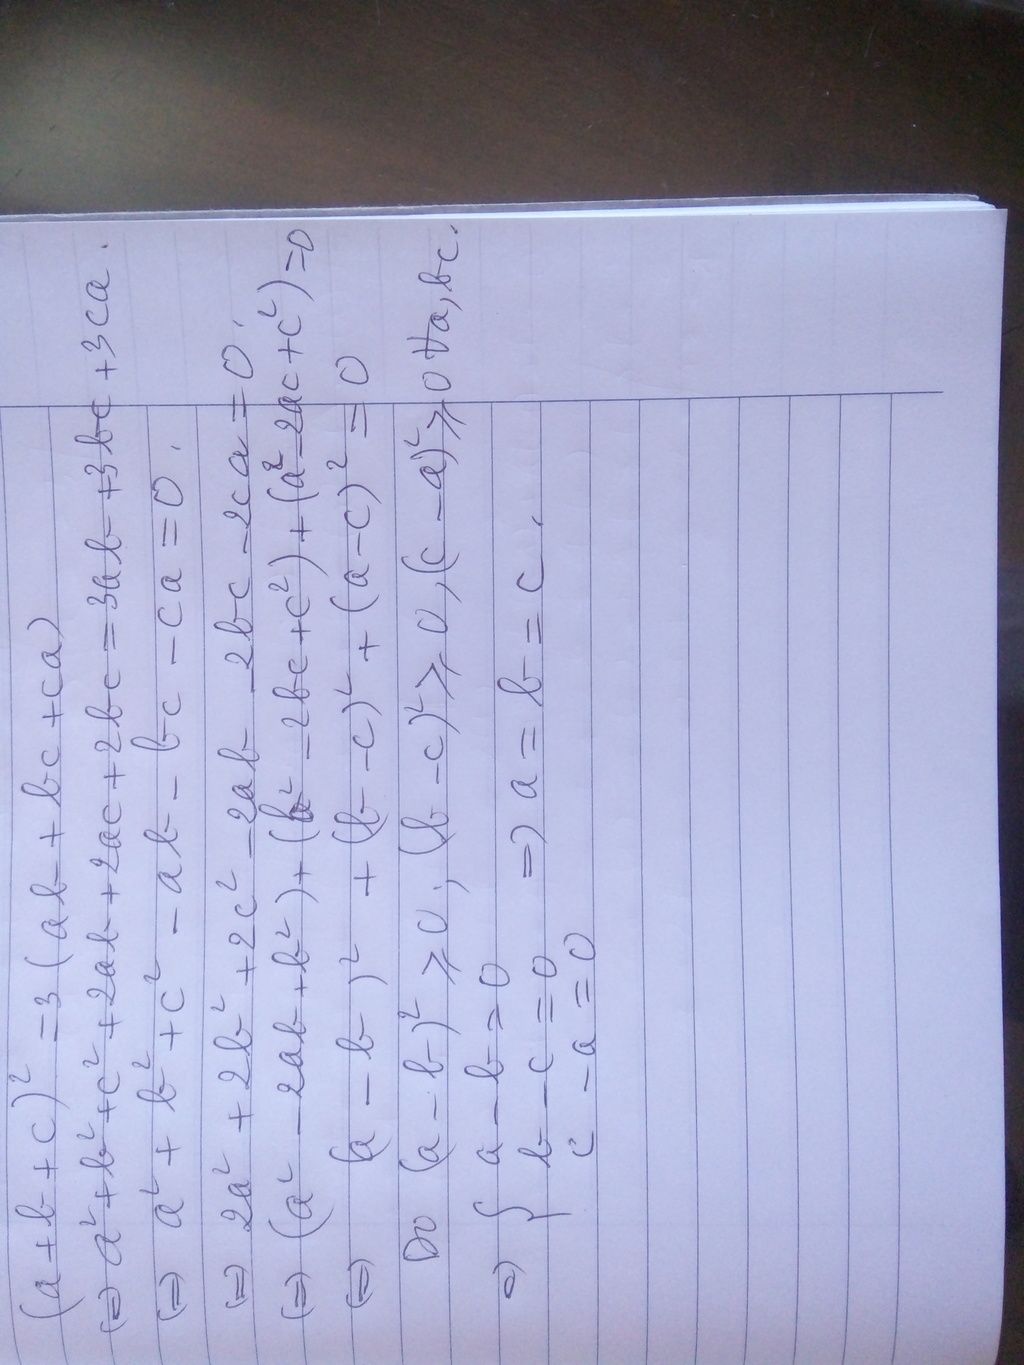 (a + b + c)² = 3 (ab + bc + ca)
(=) a² + b² + c² + 2ab + 2ac + 2bc = 3ab + 3bc + 3ca.
(=) a² + b² + c² - ab - bc - ca = 0.
(=) 2a² + 2b² + 2c² - 2ab - 2bc - 2ca = 0.
(=) (a² - 2ab + b²) + (b² - 2bc + c²) + (a² - 2ac + c²) = 0
(=) (a - b)² + (b - c)² + (a - c)² = 0
Do (a - b)² ⩾ 0, (b - c)² ⩾ 0, (c - a)² ⩾ 0 ∀a, bc.
=) { a - b = 0
b - c = 0 =) a = b = c.
c - a = 0